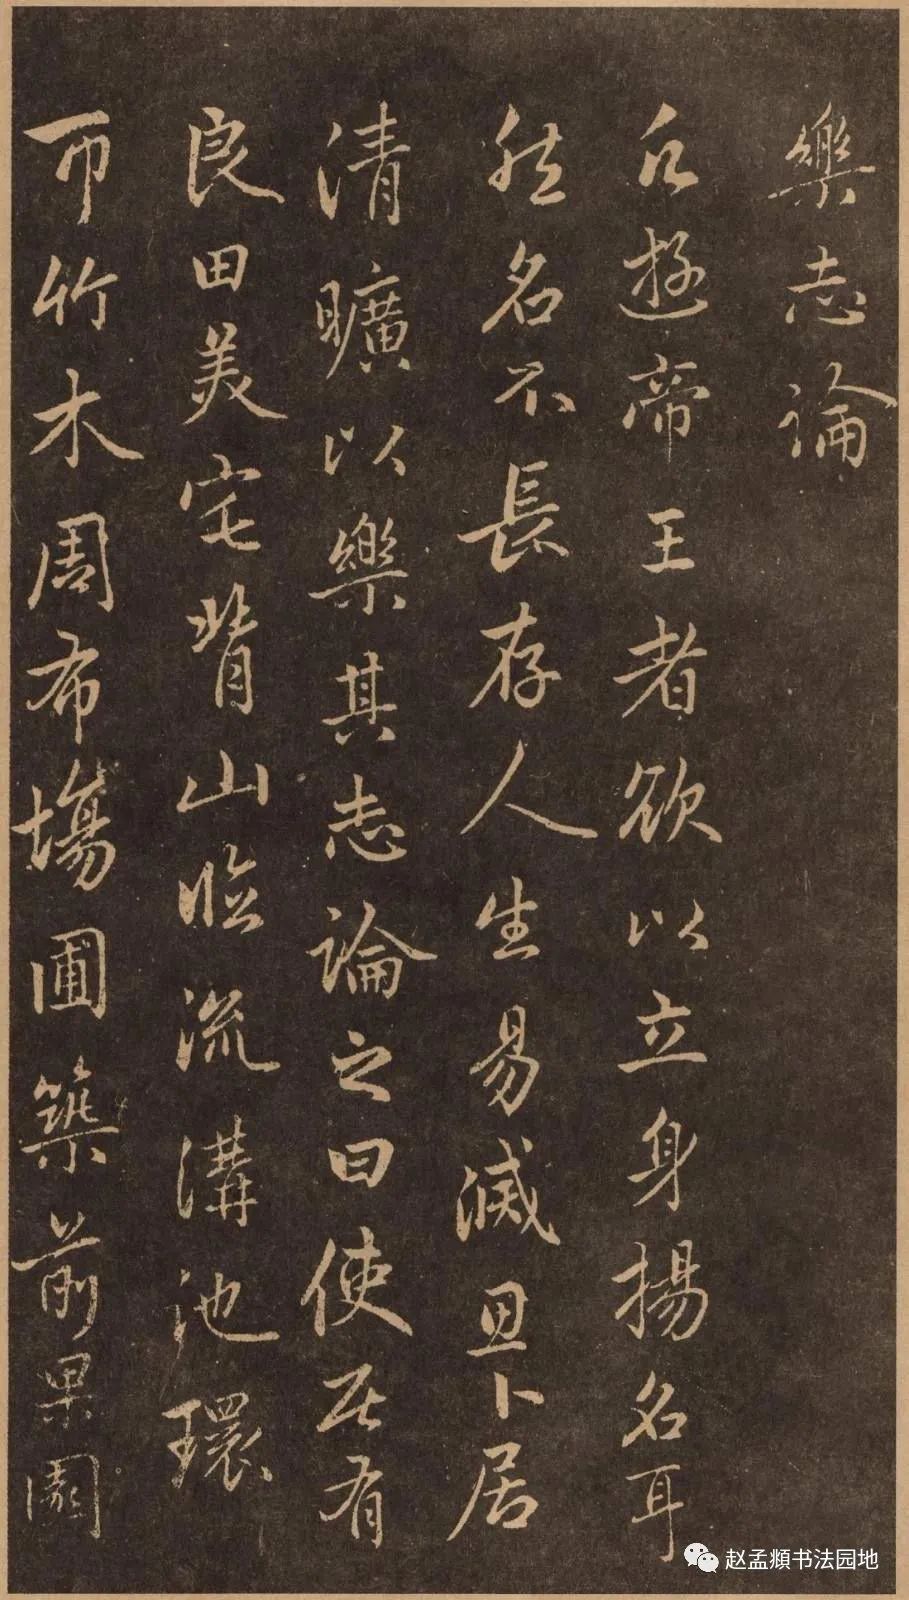 樂志論
凡遊帝王者欲以立身揚名耳
然名不長存人生易滅思卜居
清曠以樂其志論之曰使居有
良田美宅背山臨流溝池環
帀竹木周布塲圃築前果園
赵孟頫书法园地